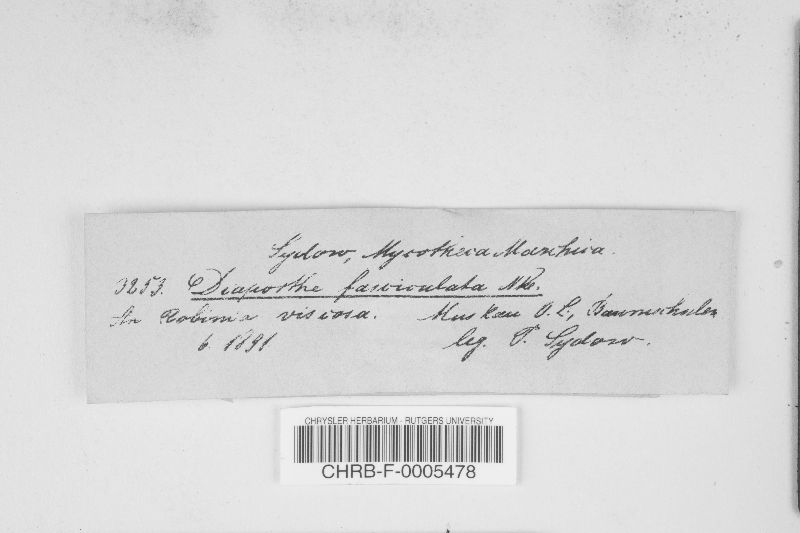 Sydow, Mycotheca Marchica.
3253. Diaporthe fasciculata Nke.
An Robinia viscosa. Muskau O. L., Baumschulen
6. 1891 leg. P. Sydow.
CHRYSLER HERBARIUM - RUTGERS UNIVERSITY
CHRB-F-0005478